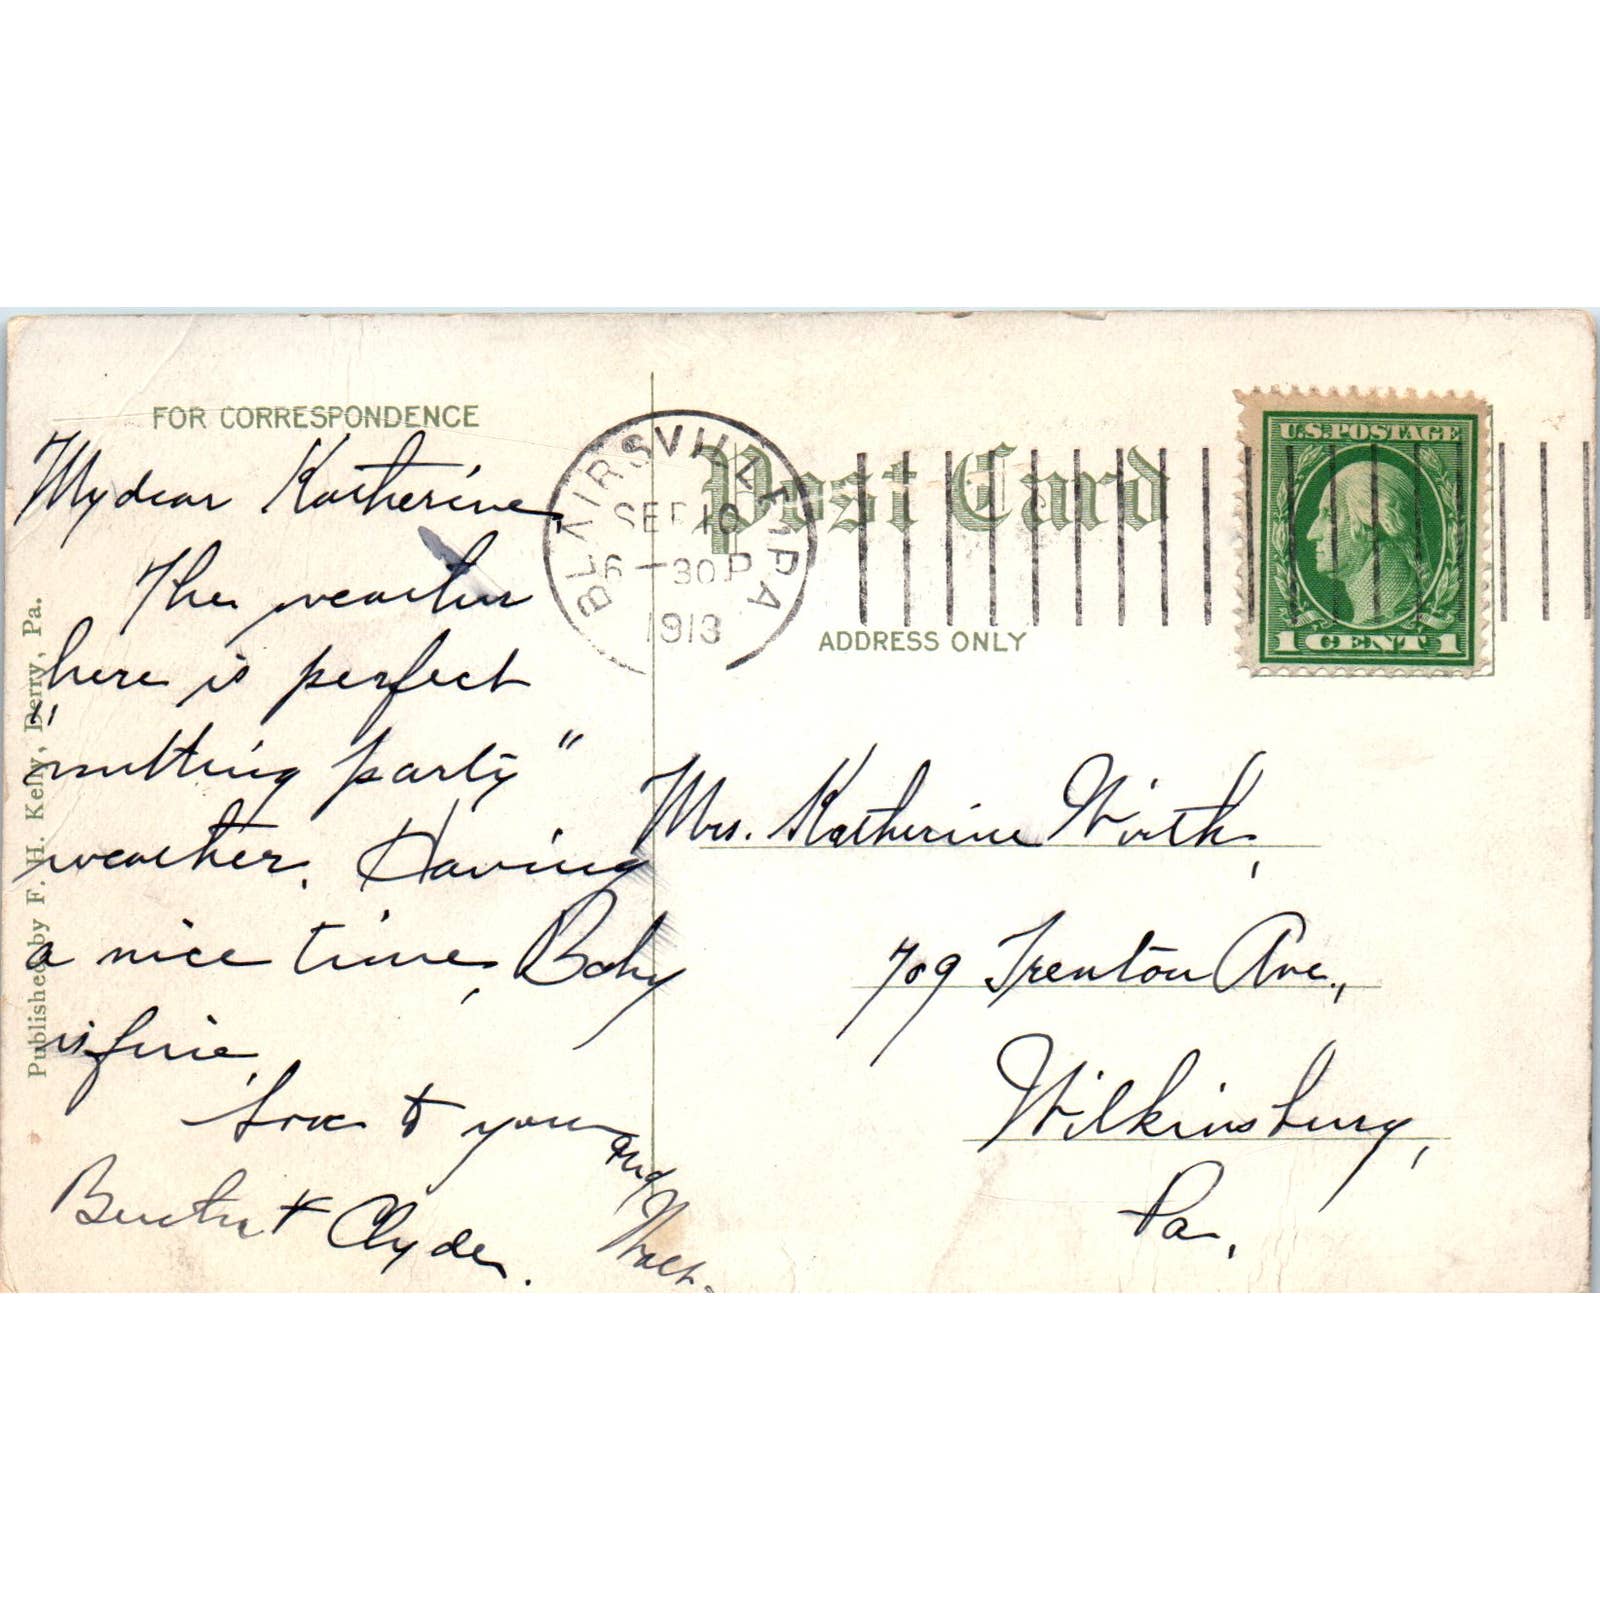 FOR CORRESPONDENCE
My dear Katherine,
The weather
here is perfect
"nutting party"
weather. Having
a nice time, Baby
is fine.
Love to you
and Walt.
Bertha + Clyde.
Published by F. H. Kelly, Derry, Pa.
BLAIRSVILLE, PA
SEP 10
6-30P
1913
Post Card
ADDRESS ONLY
U.S. POSTAGE
1 CENT 1
Mrs. Katherine Wirth,
709 Trenton Ave.,
Wilkinsburg,
Pa.